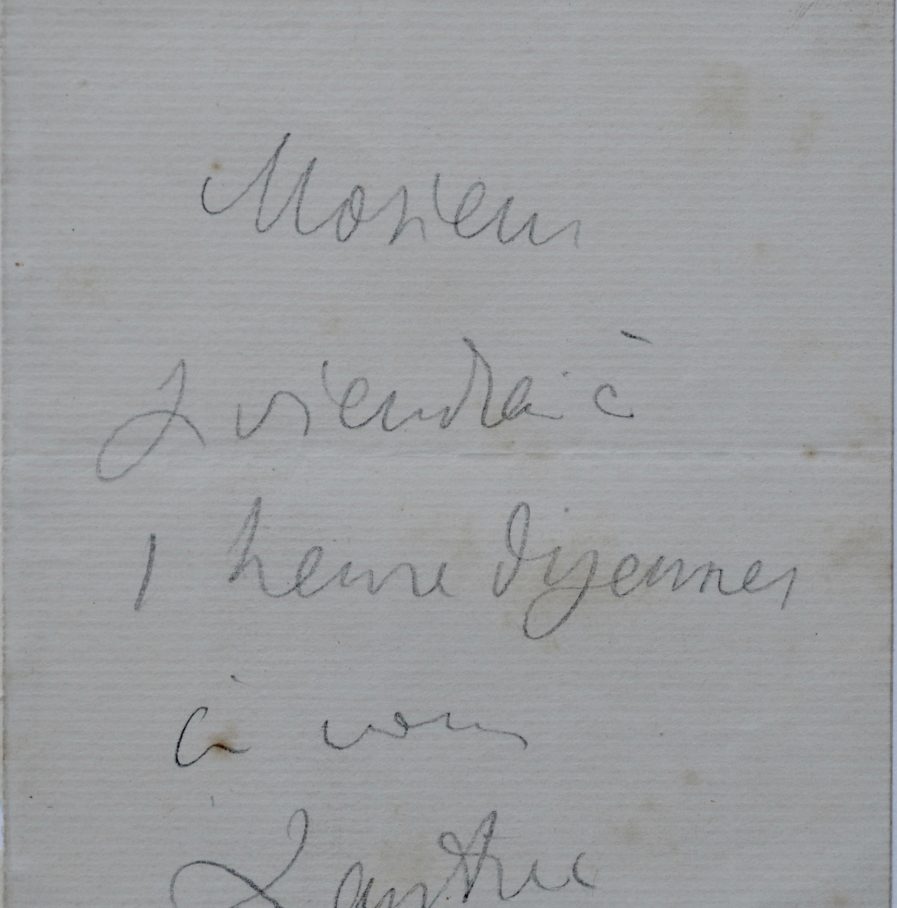 Mosieur
J viendrai à
1 heure dijeuner
à vous
Lautrec